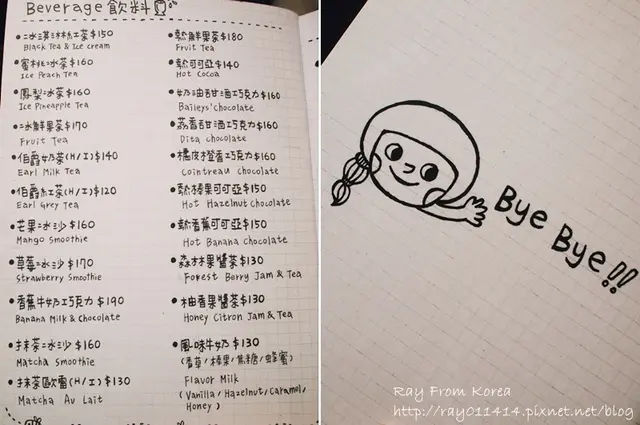 Beverage 飲料
冰淇淋紅茶$150
Black Tea & Ice cream
蜜桃冰茶$160
Ice Peach Tea
鳳梨冰茶$160
Ice Pineapple Tea
冰鮮果茶$170
Fruit Tea
伯爵奶茶(H/I)$140
Earl Milk Tea
伯爵紅茶(H/I)$120
Earl Grey Tea
芒果冰沙$160
Mango Smoothie
草莓冰沙$170
Strawberry Smoothie
香蕉牛奶巧克力$190
Banana Milk & Chocolate
抹茶冰沙$160
Matcha Smoothie
抹茶歐蕾(H/I)$130
Matcha Au Lait
熱鮮果茶$180
Fruit Tea
熱可可亞$140
Hot Cocoa
奶油甜酒巧克力$160
Baileys'chocolate
荔香甜酒巧克力$160
Dita chocolate
橘皮橙香巧克力$160
Cointreau chocolate
熱榛果可可亞$150
Hot Hazelnut Chocolate
熱香蕉可可亞$150
Hot Banana Chocolate
森林果醬茶$130
Forest Berry Jam & Tea
柚香果醬茶$130
Honey Citron Jam & Tea
風味牛奶$130
(香草/榛果/焦糖/蜂蜜)
Flavor Milk
(Vanilla/Hazelnut/Caramel/
Honey)
Bye Bye!!
Ray From Korea
http://ray011414.pixnet.net/blog